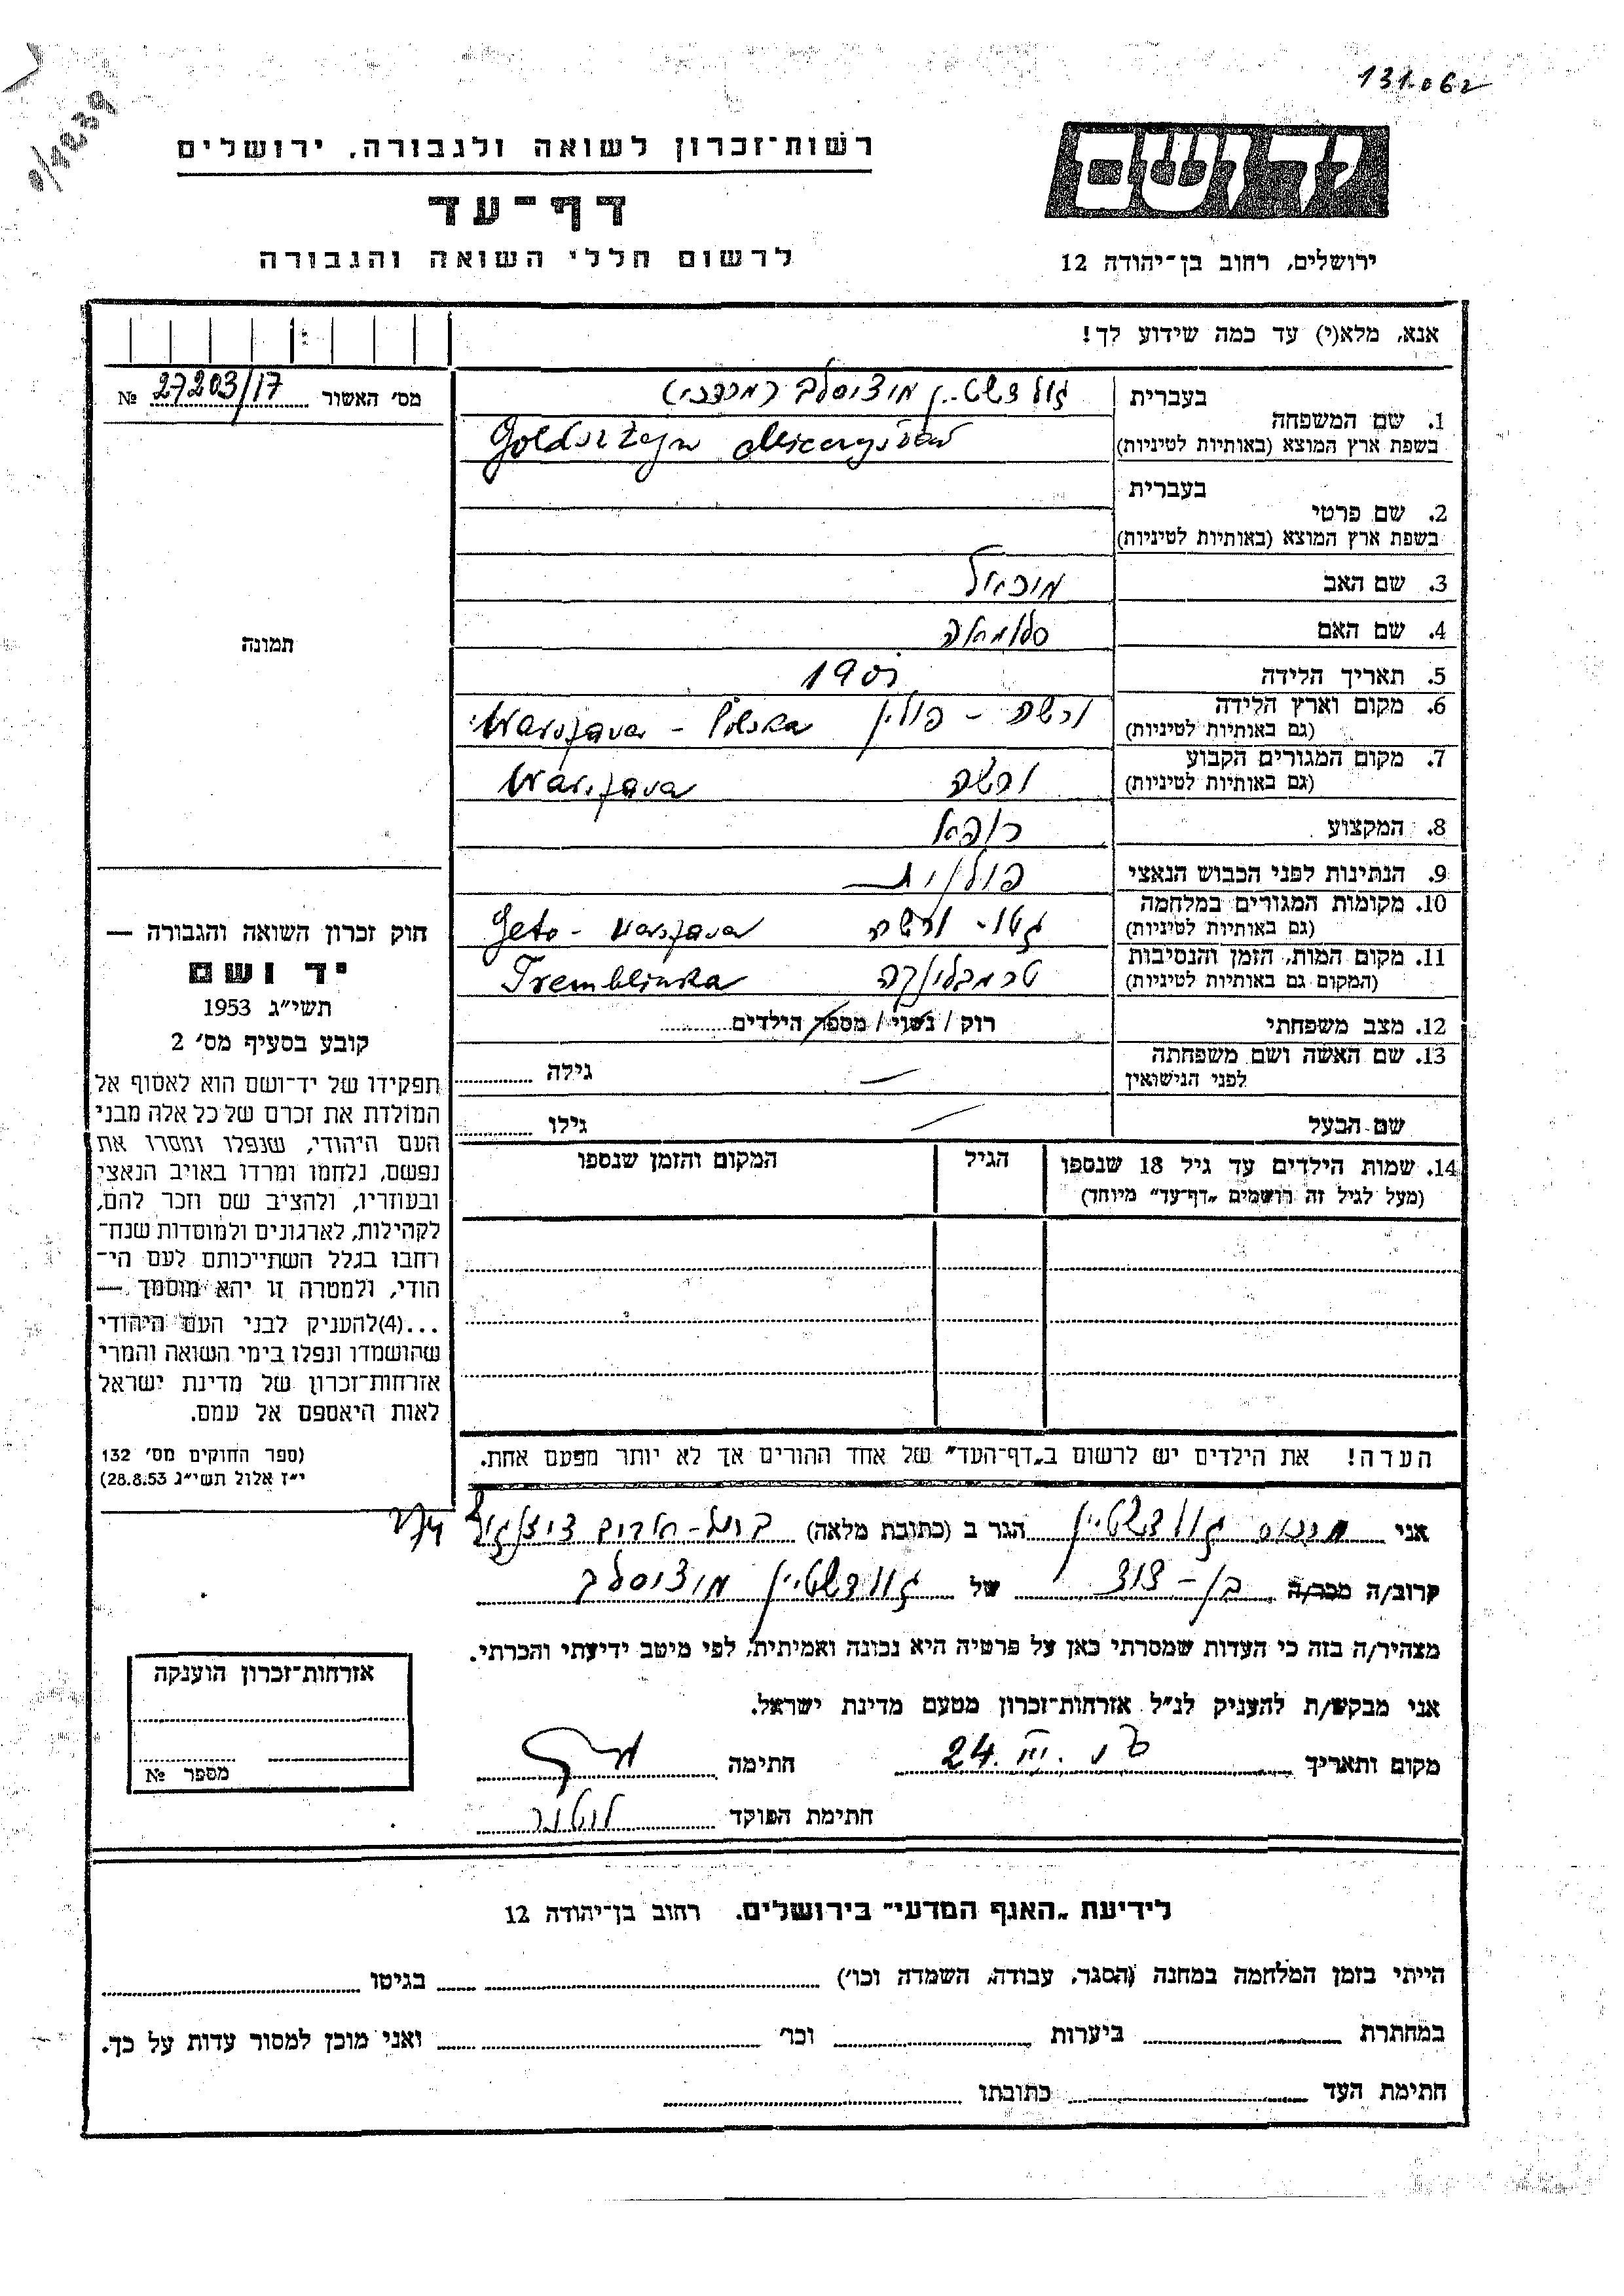 131.062
רשות־זכרון לשואה ולגבורה, ירושלים
יד ושם
דף־עד
ירושלים, רחוב בן־יהודה 12
לרשום חללי השואה והגבורה
אנא, מלא(י) עד כמה שידוע לך!
מס׳ האשור 27203/17 №
בעברית גולדשטיין מוצ׳יסלב (מרדכי)
1. שם המשפחה
בשפת ארץ המוצא (באותיות לטיניות) Goldsztejn
בעברית
2. שם פרטי
בשפת ארץ המוצא (באותיות לטיניות)
3. שם האב מיכאל
4. שם האם סלומאה
5. תאריך הלידה 1905
6. מקום וארץ הלידה ורשה - פולין Warszawa - Polska
(גם באותיות לטיניות)
7. מקום המגורים הקבוע ורשה Warszawa
(גם באותיות לטיניות)
8. המקצוע רופא
9. הנתינות לפני הכבוש הנאצי פולנית
10. מקומות המגורים במלחמה גטו - ורשה Geto - Warszawa
(גם באותיות לטיניות)
11. מקום המות, הזמן והנסיבות טרמבלינקה Tremblinka
(המקום גם באותיות לטיניות)
12. מצב משפחתי רוק / נשוי / מספר הילדים
13. שם האשה ושם משפחתה גילה
לפני הנישואין
שם הבעל גילו
14. שמות הילדים עד גיל 18 שנספו הגיל המקום והזמן שנספו
(מעל לגיל זה רושמים „דף־עד״ מיוחד)
תמונה
חוק זכרון השואה והגבורה —
יד ושם
תשי״ג 1953
קובע בסעיף מס׳ 2
תפקידו של יד־ושם הוא לאסוף אל
המולדת את זכרם של כל אלה מבני
העם היהודי, שנפלו ומסרו את
נפשם, נלחמו ומרדו באויב הנאצי
ובעוזריו, ולהציב שם וזכר להם,
לקהילות, לארגונים ולמוסדות שנח־
רבו בגלל השתייכותם לעם הי־
הודי, ולמטרה זו יהא מוסמך —
...(4)להעניק לבני העם היהודי
שהושמדו ונפלו בימי השואה והמרי
אזרחות־זכרון של מדינת ישראל
לאות היאספם אל עמם.
(ספר החוקים מס׳ 132
י״ז אלול תשי״ג 28.8.53)
הערה! את הילדים יש לרשום ב„דף־העד״ של אחד ההורים אך לא יותר מפעם אחת.
אני גולדשטיין הגר ב (כתובת מלאה)
קרוב/ה מכר/ה בן - דוד של גולדשטיין מוצ׳יסלב
מצהיר/ה בזה כי העדות שמסרתי כאן על פרטיה היא נכונה ואמיתית, לפי מיטב ידיעתי והכרתי.
אני מבקש/ת להעניק לנ״ל אזרחות־זכרון מטעם מדינת ישראל.
מקום ותאריך 24. III. חתימה
חתימת הפוקד
אזרחות־זכרון הוענקה
מספר №
לידיעת „האגף המדעי״ בירושלים. רחוב בן־יהודה 12
הייתי בזמן המלחמה במחנה (הסגר, עבודה, השמדה וכו׳) בגיטו
במחתרת ביערות וכו׳ ואני מוכן למסור עדות על כך.
חתימת העד כתובתו